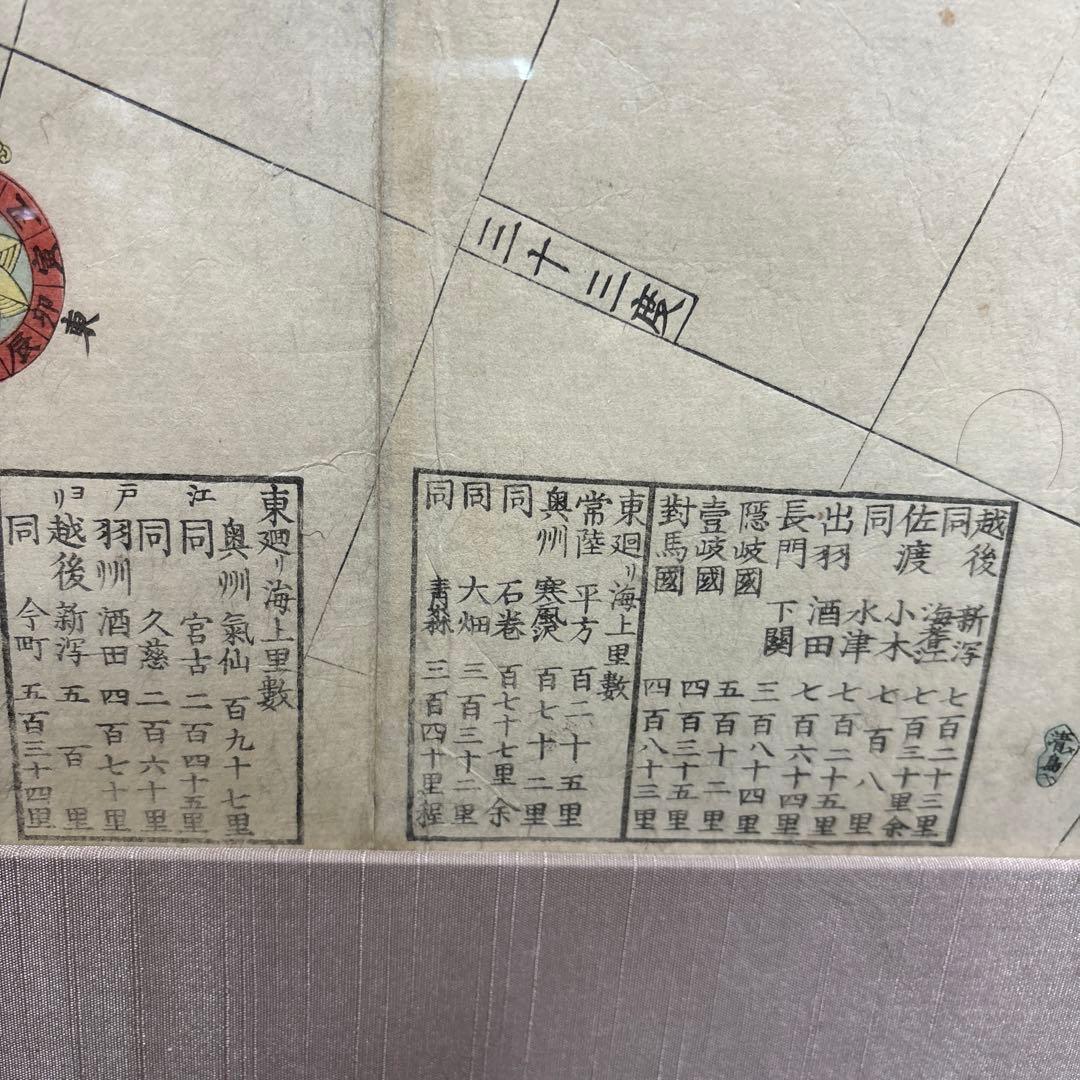 三十三度
東
寅
卯
辰
越後 新泻 七百二十三里
同 海老江 七百三十里余
佐渡 小木 七百八里
同 水津 七百二十五里
出羽 酒田 七百六十四里
長門 下關 三百八十四里
隠岐國 五百十二里
壹岐國 四百三十五里
對馬國 四百八十三里
東廻リ海上里數
常陸 平方 百二十五里
奥州 寒風沢 百七十二里
同 石巻 百七十七里余
同 大畑 三百三十二里
同 青森 三百四十里程
東廻リ海上里數
江戸ヨリ
奥州 氣仙 百九十七里
同 宮古 二百四十五里
同 久慈 二百六十里
羽州 酒田 四百七十里
越後 新泻 五百里
同 今町 五百三十四里